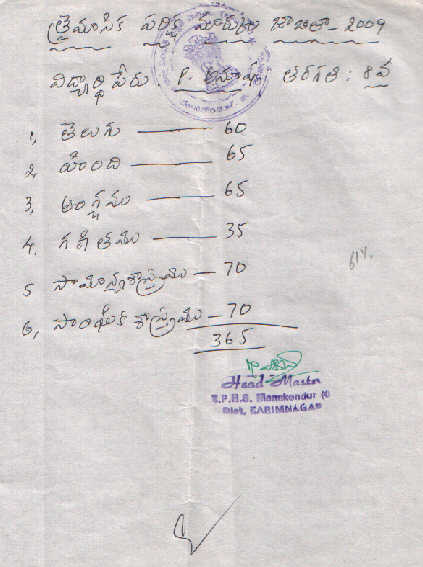 త్రైమాసిక పరీక్ష మార్కుల జాబితా - 2009
విద్యార్థి పేరు : P. తరగతి : 8వ
1, తెలుగు — 60
2, హింది — 65
3, ఆంగ్లము — 65
4. గణితము — 35
5 సామాన్యశాస్త్రము — 70
6, సాంఘీక శాస్త్రము — 70
365
61%
Head Master
Z.P.H.S. Manakondur
Dist. KARIMNAGAR